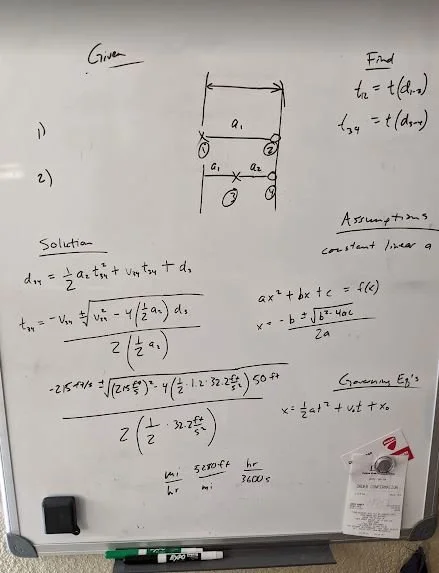 Given
Find
t₁₂ = t(d₁₋₂)
t₃₄ = t(d₃₋₄)
1)
a₁
① ②
2)
a₁ a₂
③ ④
Assumptions
constant linear a
Solution
d₃₄ = 1/2 a₂ t₃₄² + v₃₄ t₃₄ + d₃
t₃₄ = (-v₃₄ ± √(v₃₄² - 4(1/2 a₂) d₃)) / (2(1/2 a₂))
ax² + bx + c = f(x)
x = (-b ± √(b² - 4ac)) / 2a
(-215 ft/s ± √((215 ft/s)² - 4(1/2 · 1.2 · 32.2 ft/s²) 50 ft)) / (2(1/2 · 32.2 ft/s²))
Governing Eq's
x = 1/2 at² + v₀t + x₀
mi/hr 5280 ft/mi hr/3600 s
ORDER CONFIRMATION